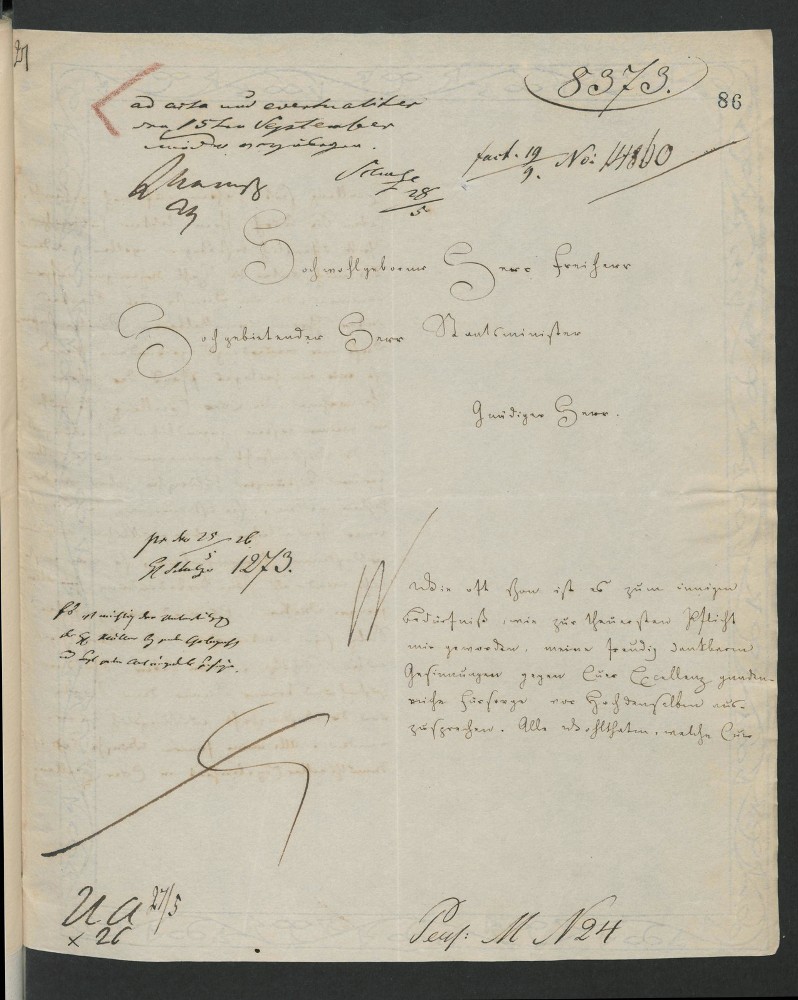 8373.
86
ad acta und eventualiter
den 15ten September
wieder vorzulegen.
Schulze
28
5
fact. 19
9. No: 14860
Hochwohlgeborner Herr Freiherr
Hochgebietender Herr Staatsminister
Gnädiger Herr.
pr. den 25/5 26
1273.
Wie oft schon ist es zum innigen
Bedürfniß, wie zur theuersten Pflicht
mir geworden, meine freudig dankbaren
Gesinnungen gegen Euer Excellenz gnaden-
reiche Fürsorge vor Hochdenselben aus-
zusprechen. Alle Wohlthaten, welche Euer
U a 27/5
x 26
M N24